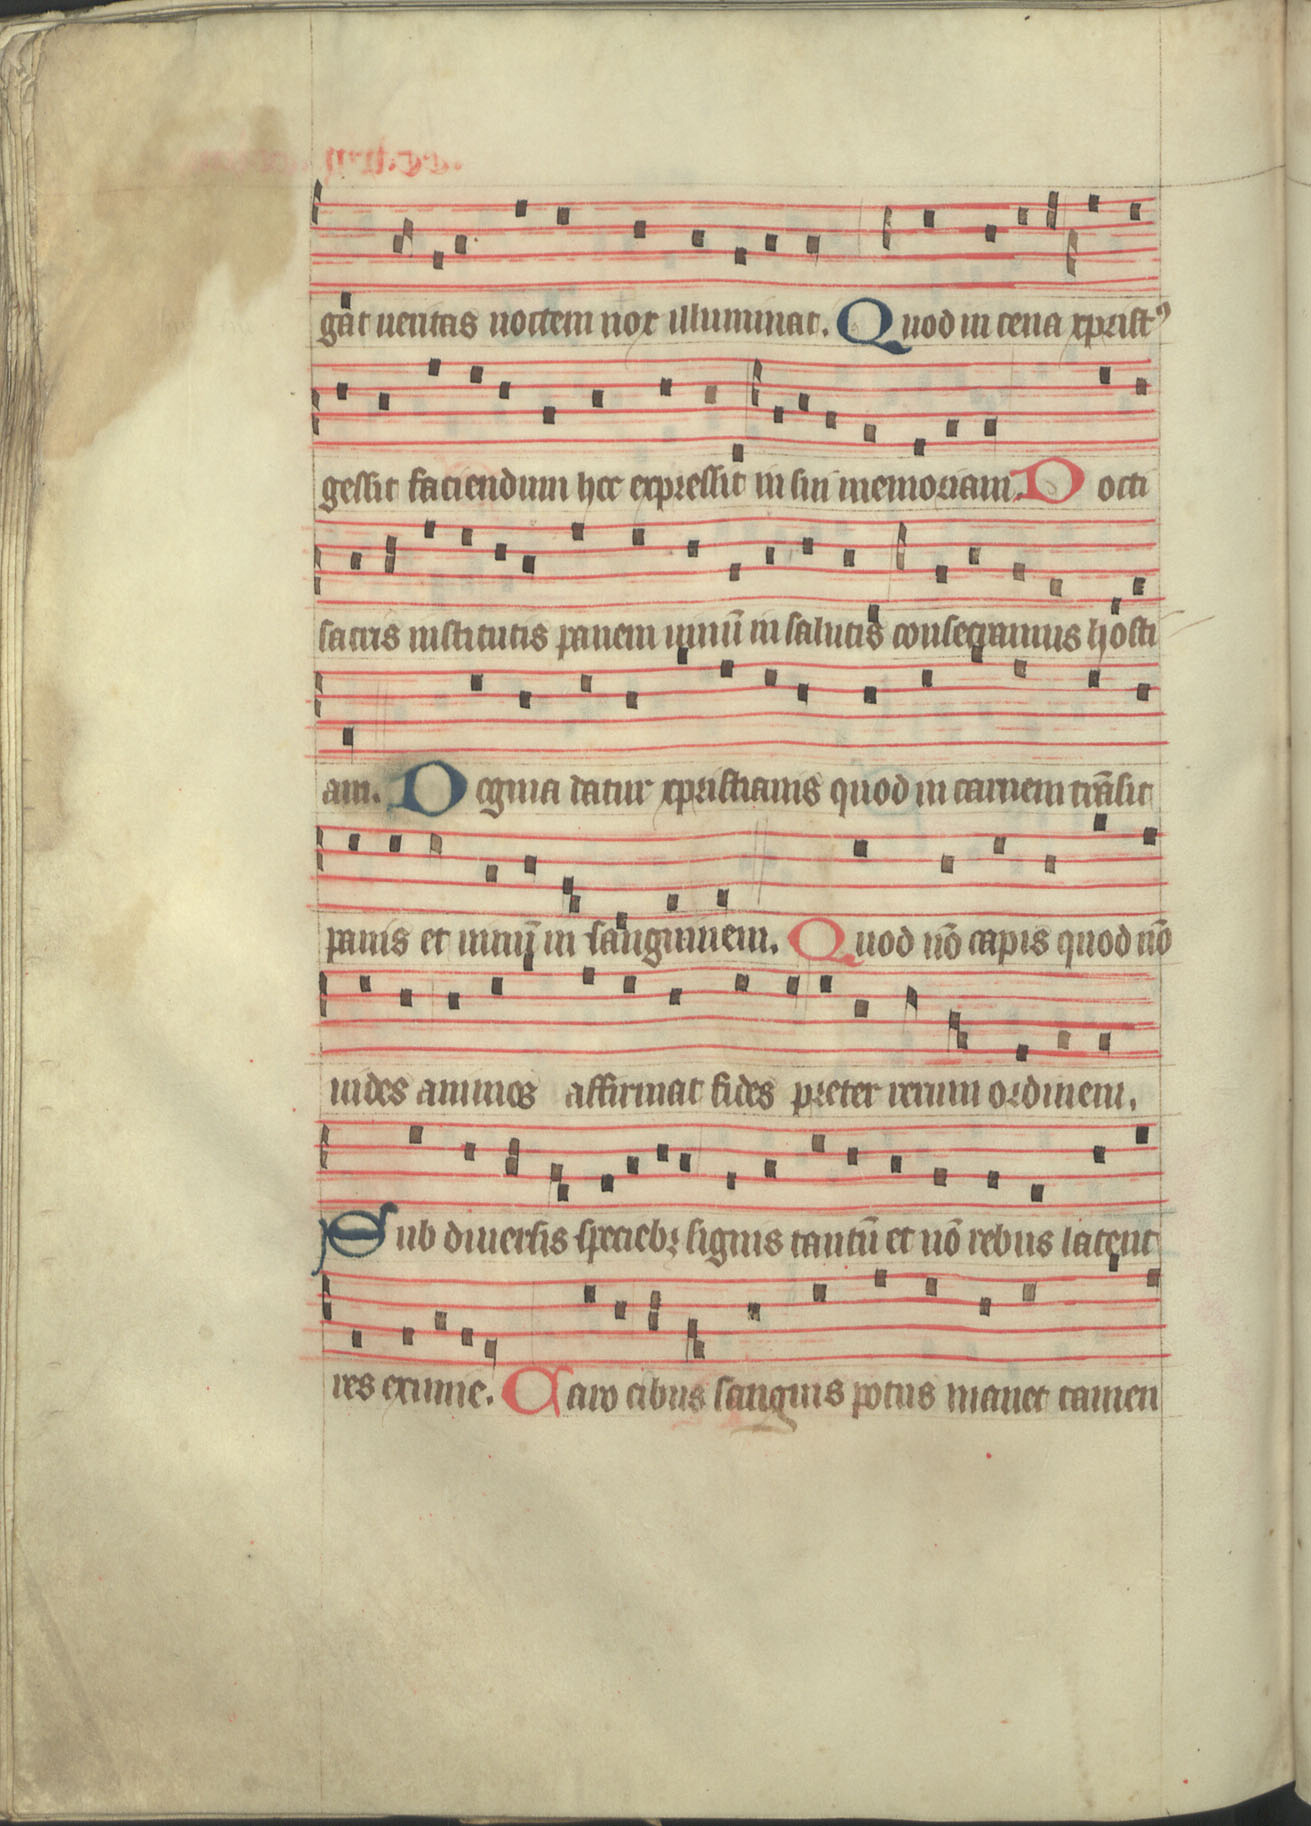 gat ueritas noctem nox illuminat. Quod in cena xprist⁹
gessit faciendum hec expressit in sui memoriam. Docti
sacris institutis panem uinū in salutis consecramus hosti
am. Dogma datur xpristianis quod in carnem trāsit
panis et uinū in sanguinem. Quod nō capis quod nō
uides animoꝫ affirmat fides preter rerum ordinem.
Sub diuersis speciebꝫ signis tantū et nō rebus latent
res eximie. Caro cibus sanguis potus manet tamen